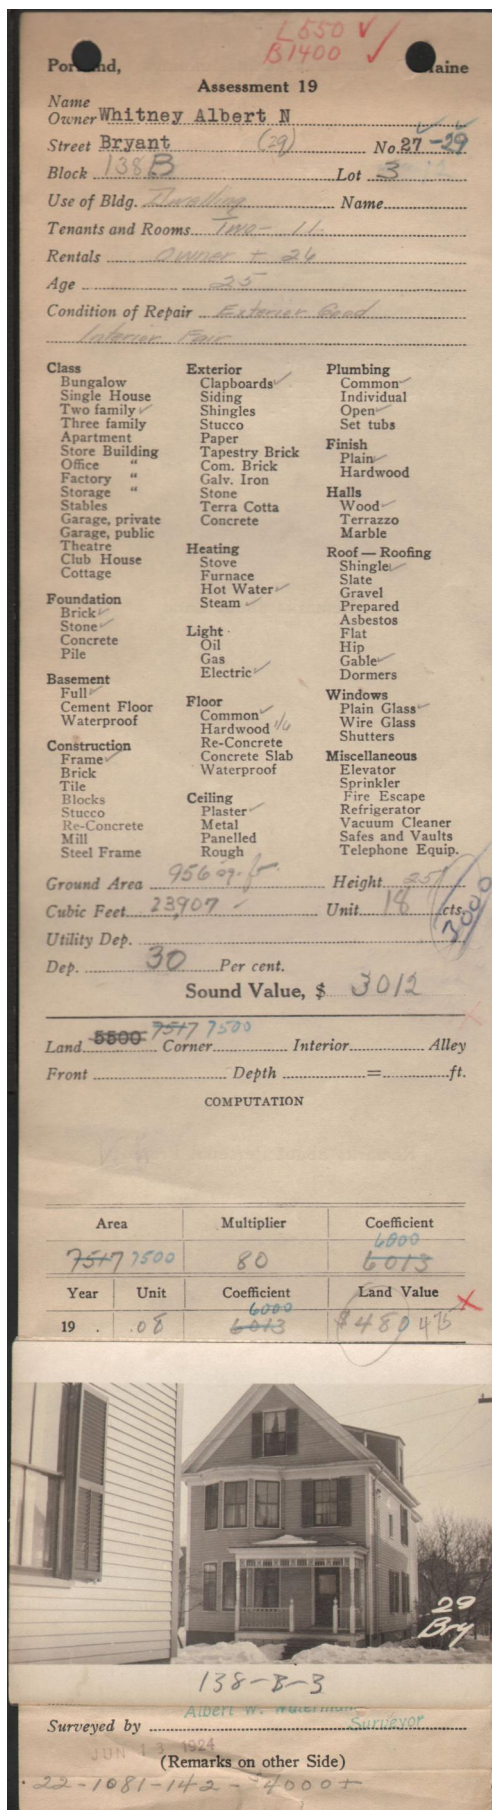 L 550 ✓
B 1400 ✓
Portland, Maine
Assessment 19
Name
Owner Whitney Albert N
Street Bryant (29) No. 27-29
Block 138B Lot 3 12
Use of Bldg. Dwelling Name
Tenants and Rooms Two - 11
Rentals Owner + 26
Age 25
Condition of Repair Exterior Good
Interior Fair
Class
Bungalow
Single House
Two family ✓
Three family
Apartment
Store Building
Office "
Factory "
Storage "
Stables
Garage, private
Garage, public
Theatre
Club House
Cottage
Foundation
Brick ✓
Stone ✓
Concrete
Pile
Basement
Full ✓
Cement Floor
Waterproof
Construction
Frame ✓
Brick
Tile
Blocks
Stucco
Re-Concrete
Mill
Steel Frame
Exterior
Clapboards ✓
Siding
Shingles
Stucco
Paper
Tapestry Brick
Com. Brick
Galv. Iron
Stone
Terra Cotta
Concrete
Heating
Stove
Furnace
Hot Water ✓
Steam ✓
Light
Oil
Gas
Electric ✓
Floor
Common ✓
Hardwood
Re-Concrete
Concrete Slab
Waterproof
Ceiling
Plaster ✓
Metal
Panelled
Rough
Plumbing
Common ✓
Individual
Open ✓
Set tubs
Finish
Plain ✓
Hardwood
Halls
Wood ✓
Terrazzo
Marble
Roof — Roofing
Shingle ✓
Slate
Gravel
Prepared
Asbestos
Flat
Hip
Gable ✓
Dormers
Windows
Plain Glass ✓
Wire Glass
Shutters
Miscellaneous
Elevator
Sprinkler
Fire Escape
Refrigerator
Vacuum Cleaner
Safes and Vaults
Telephone Equip.
Ground Area 956 sq. ft Height 25
Cubic Feet 23,907 Unit 18 cts.
3000
Utility Dep.
Dep. 30 Per cent.
Sound Value, $ 3012
Land 5500 7517 7500 Corner Interior Alley
Front Depth = ft.
COMPUTATION
Area Multiplier Coefficient
6000
7517 7500 80 6013
Year Unit Coefficient Land Value
6000
19 . .08 6013 $480 475
29
Bry
138-B-3
Albert W. Waterman
Surveyed by Surveyor
JUN 13 1924
(Remarks on other Side)
22-1081-142-$4000+